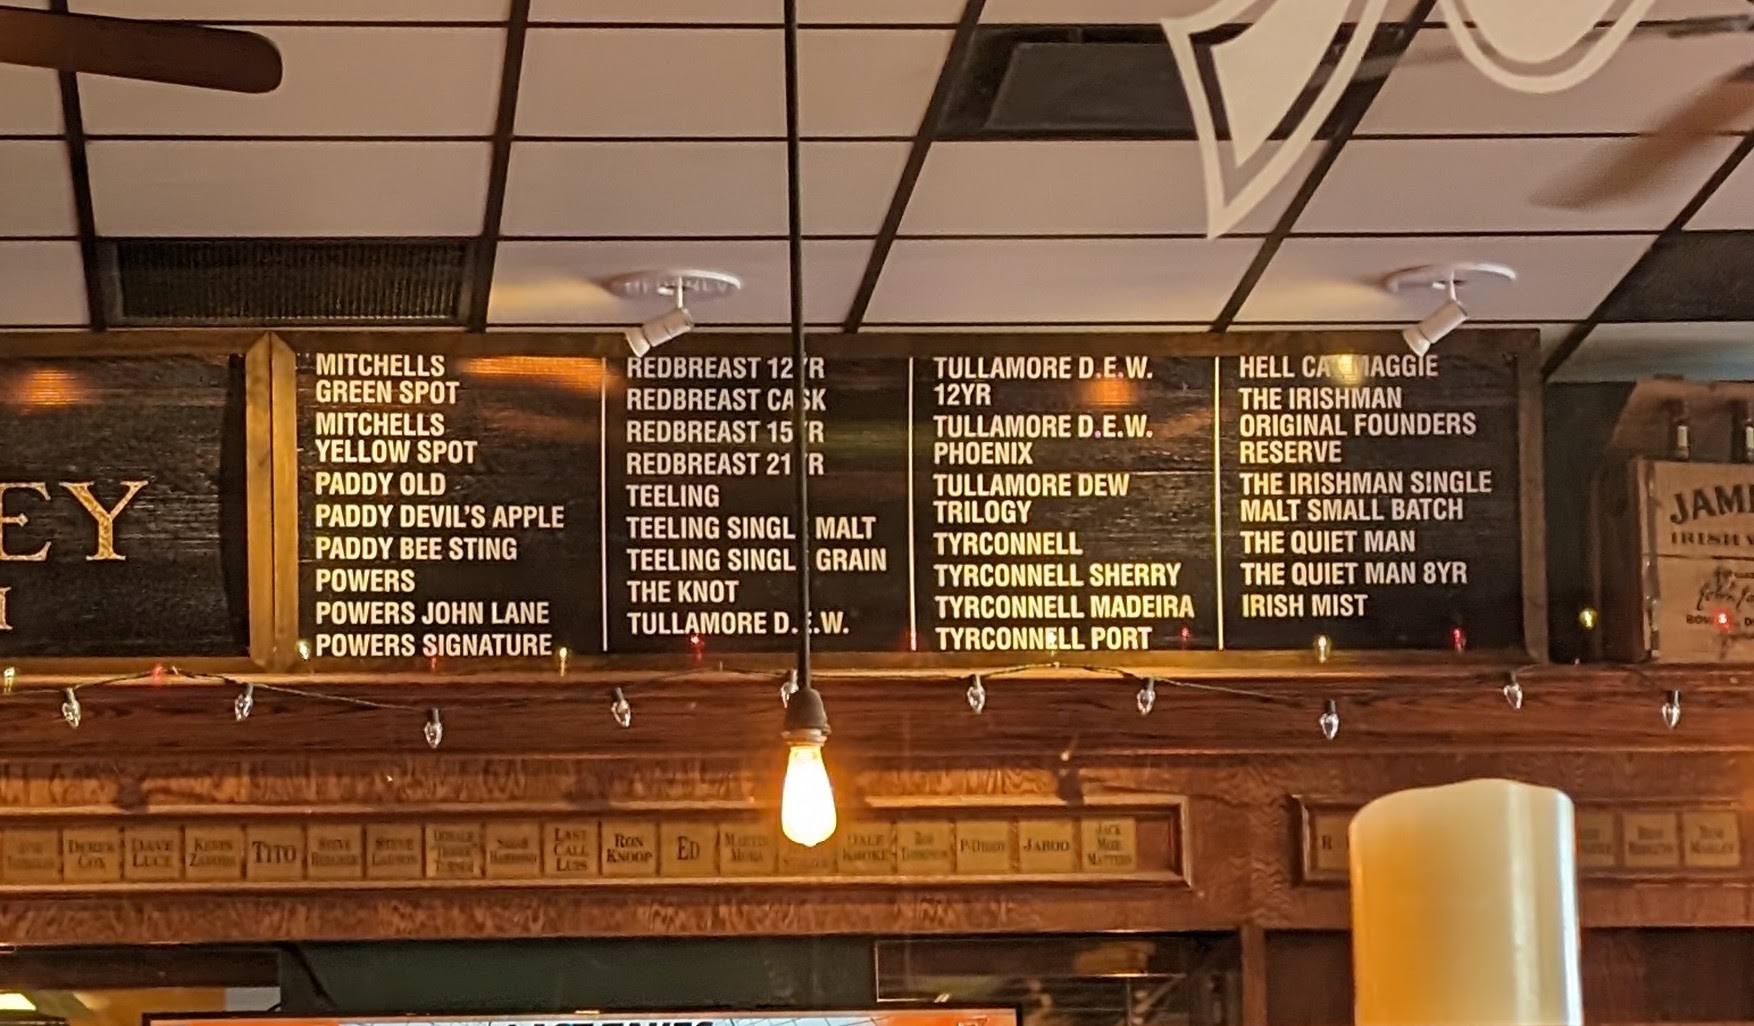 EY
MITCHELLS
GREEN SPOT
MITCHELLS
YELLOW SPOT
PADDY OLD
PADDY DEVIL'S APPLE
PADDY BEE STING
POWERS
POWERS JOHN LANE
POWERS SIGNATURE
REDBREAST 12YR
REDBREAST CASK
REDBREAST 15YR
REDBREAST 21YR
TEELING
TEELING SINGLE MALT
TEELING SINGLE GRAIN
THE KNOT
TULLAMORE D.E.W.
TULLAMORE D.E.W.
12YR
TULLAMORE D.E.W.
PHOENIX
TULLAMORE DEW
TRILOGY
TYRCONNELL
TYRCONNELL SHERRY
TYRCONNELL MADEIRA
TYRCONNELL PORT
HELL CAT MAGGIE
THE IRISHMAN
ORIGINAL FOUNDERS
RESERVE
THE IRISHMAN SINGLE
MALT SMALL BATCH
THE QUIET MAN
THE QUIET MAN 8YR
IRISH MIST
JAM
IRISH
DEREK
COX
DAVE
LUCE
KEVIN
TITO
STEVE
STEVE
LAST
CALL
LUIS
RON
KNOOP
ED
DALE
P-DIDDY
JABOO
JACK